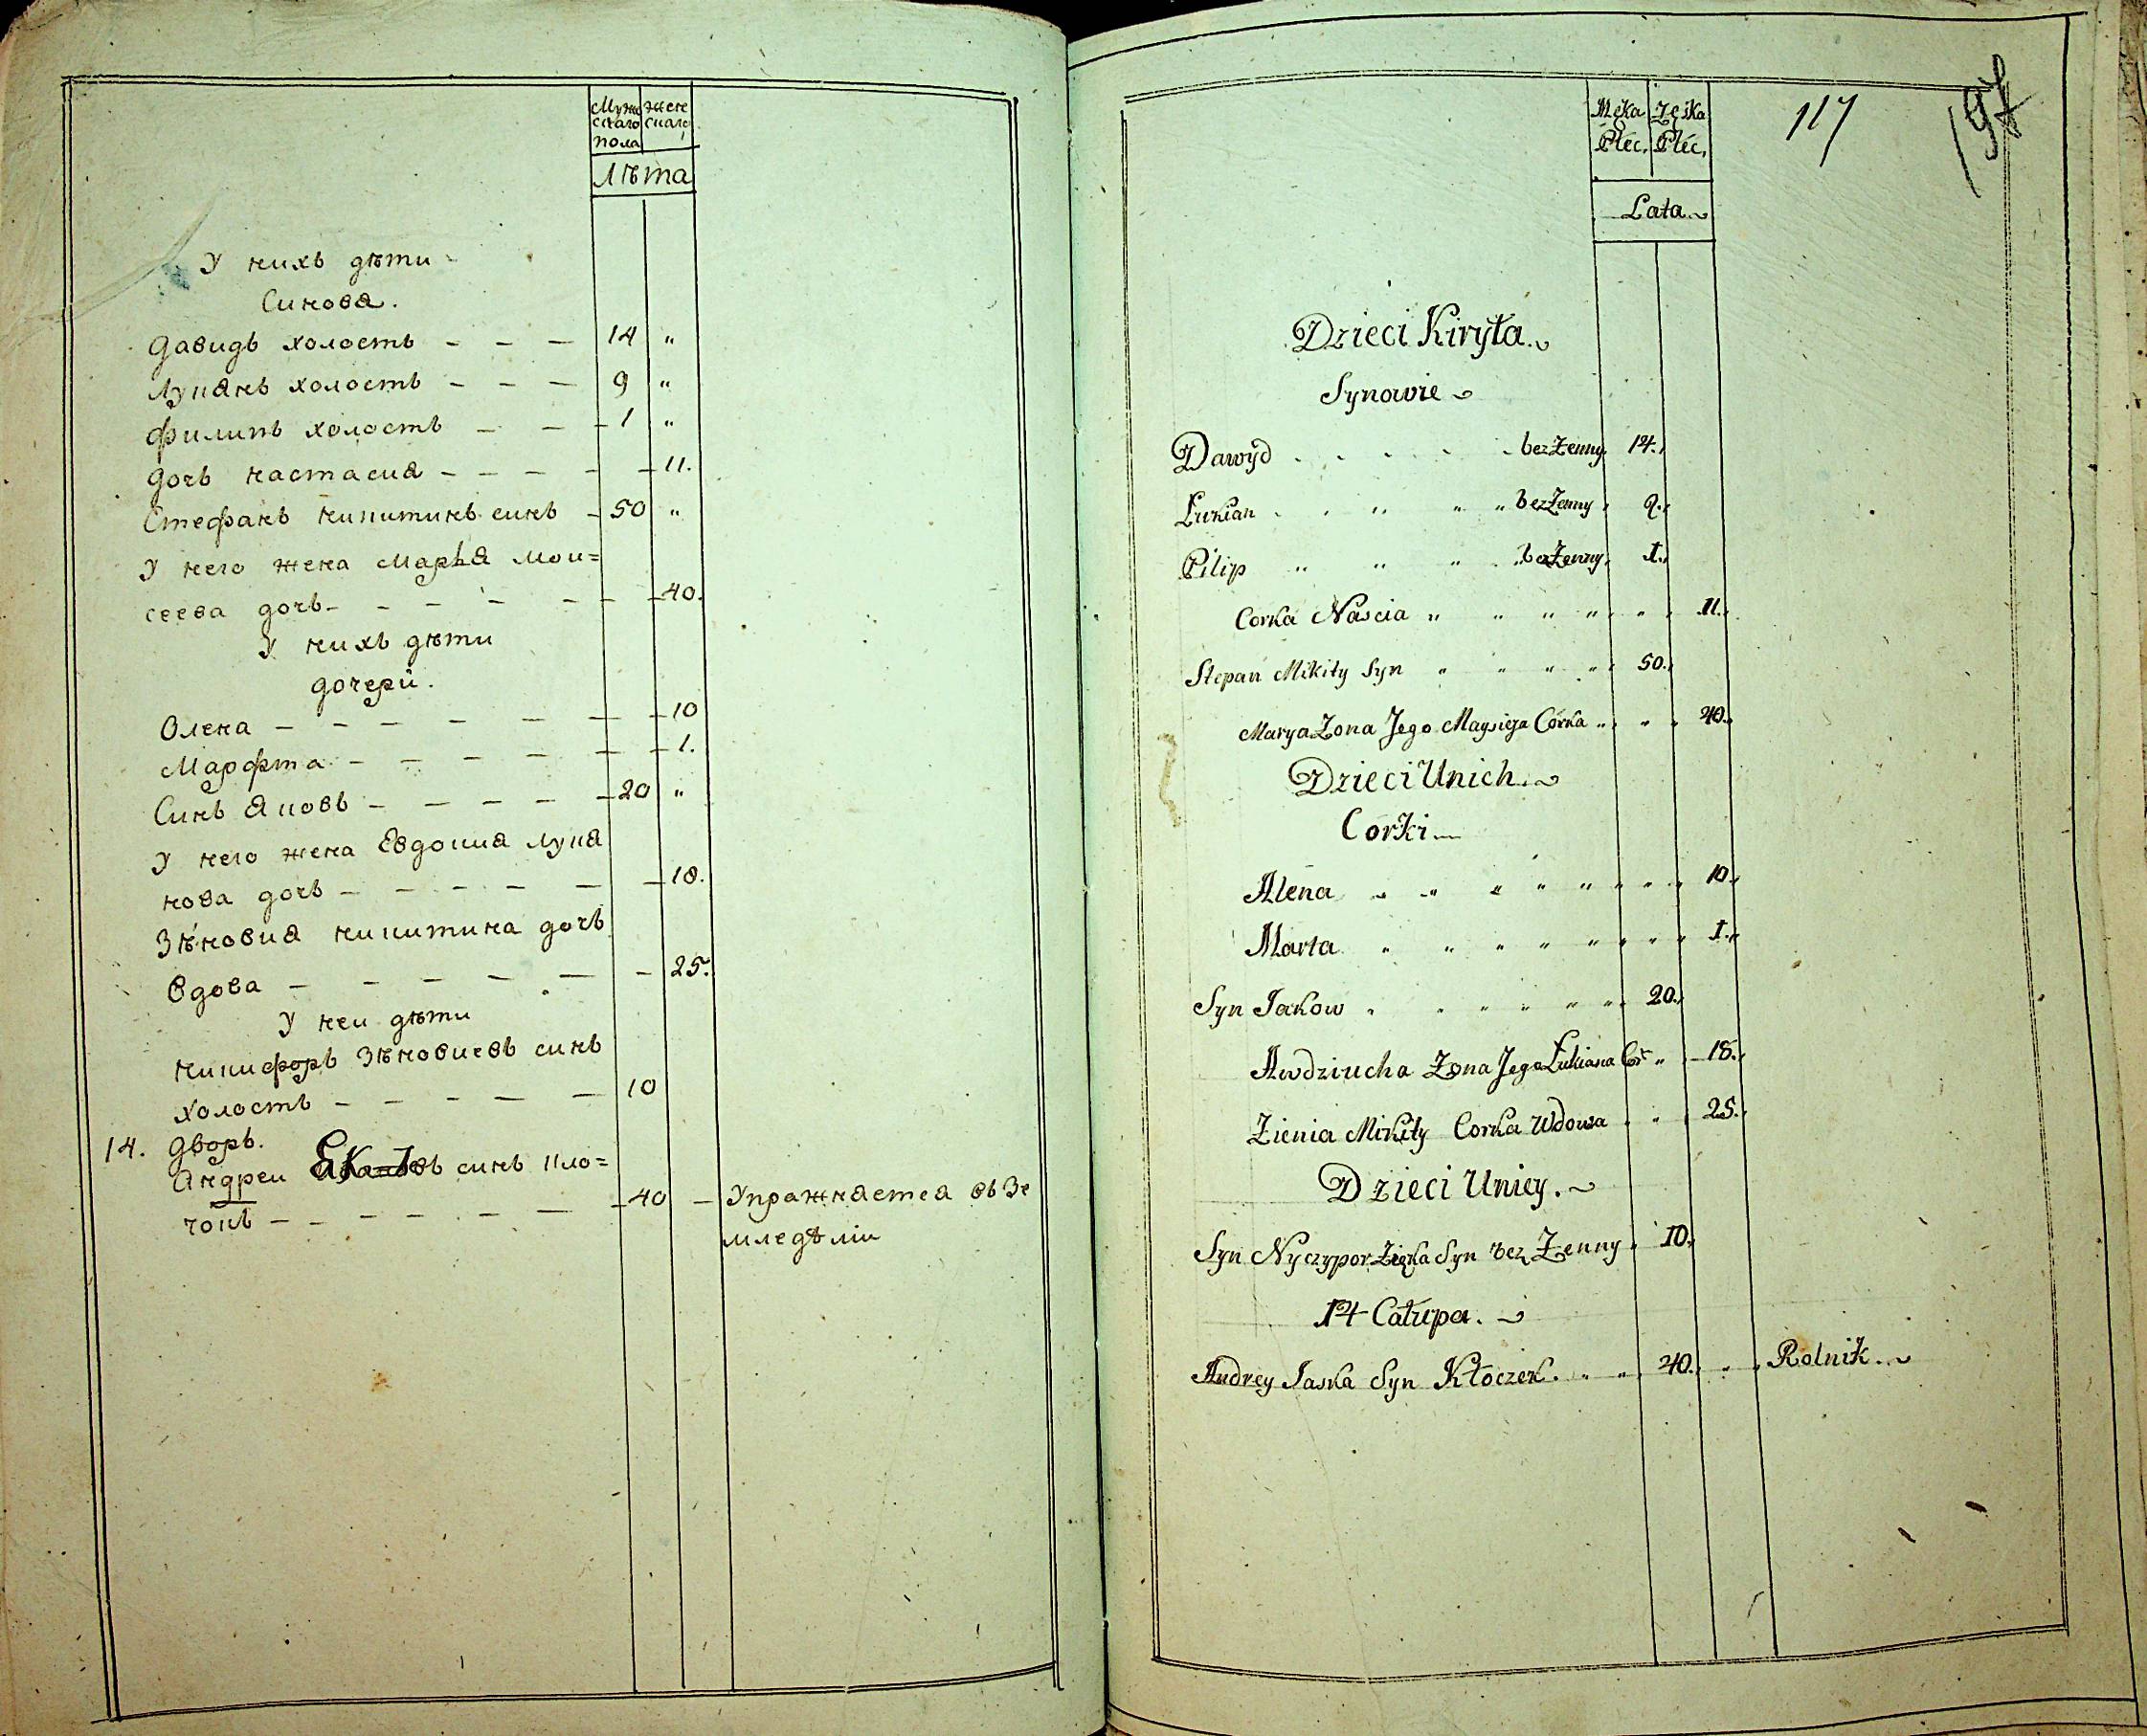 Муже
скаго
пола
жен
скаго
Лѣта
У нихъ дѣти
Синовя.
Давидъ холостъ – – – 14 "
Лукянъ холостъ – – – 9 "
Филипъ холостъ – – – 1 "
Дочь Настасия – – – – – 11.
Стефанъ Никитинъ синъ – 50 "
У него жена Марья Мои=
сеева дочь – – – – – – 40.
У нихъ дѣти
Дочери.
Олена – – – – – – – 10
Марфта – – – – – – – 1.
Синъ Яковъ – – – – – 20 "
У него жена Евдокия Лукя
нова дочь – – – – – – 18.
Зѣновия Никитина дочь
Вдова – – – – – – 25.
У неи дѣти
Никифоръ Зѣновиевъ синъ
холостъ – – – – – 10
14. Дворъ.
Андреи синъ Кло=
чокъ – – – – – – – 40 – Упражняется въ Зе
мледѣлiи
Męka
Płéc.
Zęska
Płéc.
117
197
Lata
Dzieci Kiryła.
Synowie
Dawyd . . . . . bezZenny. 14.,
Łukian . . " " " bezZenny, 9.,
Pilip " " " " bezZenny, I.,
Corka Nascia " " " " " " 11.,
Stepan Mikity Syn " " " " 50.,
Marya Zona Jego Maysieja Córka " " " 40.,
Dzieci Unich.
Corki
Alena " " " " " " " " 10.,
Marta " " " " " " " " I.,
Syn Jakow " " " " " " 20.,
Awdziucha Zona Jego Łukiana Cor: " 18.,
Zienia Mikity Corka Wdowa " " " 25.,
Dzieci Uniey.
Syn Nyczypor Zięka Syn bez Zenny " 10.,
14 Całupa.
Andrey Jaska Syn Kłoczek. " " 40., " " Rolnik.